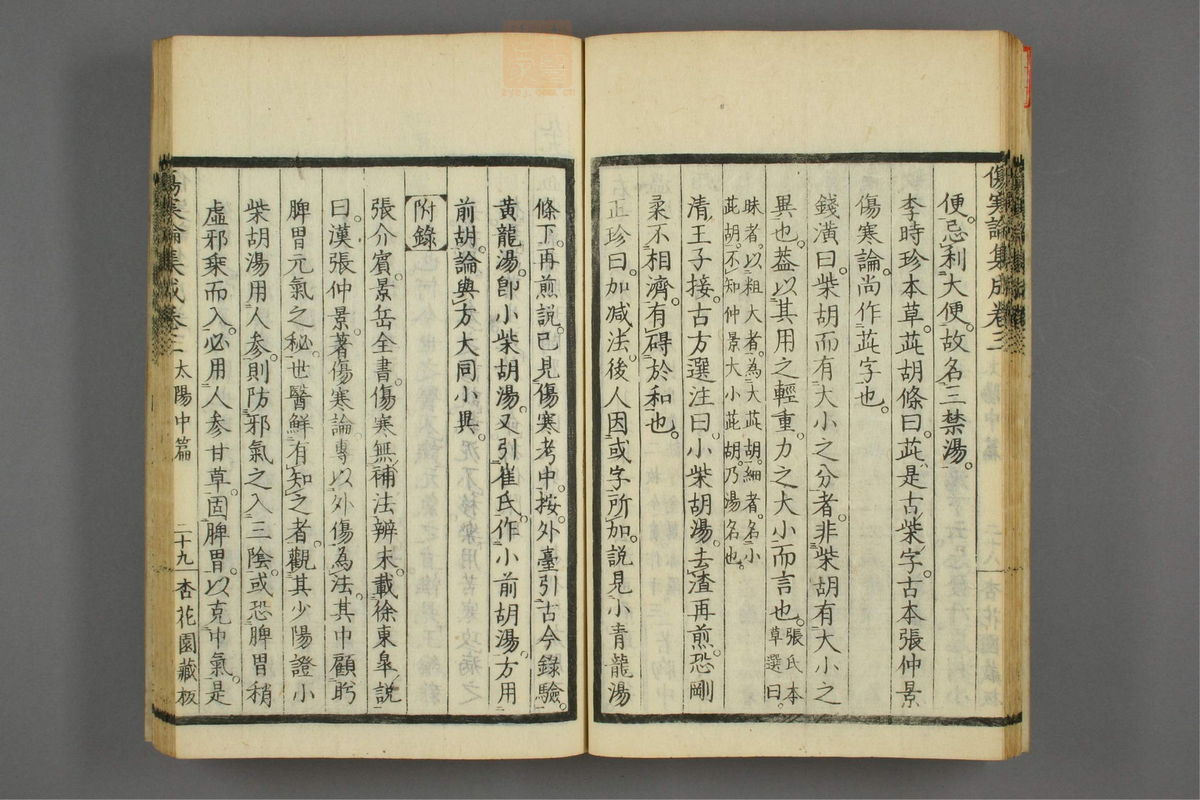 傷寒論集成卷三
便。忌利大便。故名三禁湯。
李時珍本草。茈胡條曰。茈。是古柴字。古本張仲景
傷寒論。尚作茈字也。
錢潢曰。柴胡而有大小之分者。非柴胡有大小之
異也。葢以其用之輕重。力之大小而言也。張氏本草選曰。
昧者。以粗大者。為大茈胡。細者。名小
茈胡。不知仲景大小茈胡。乃湯名也。
清王子接。古方選注曰。小柴胡湯。去渣再煎。恐剛
柔不相濟。有碍於和也。
正珍曰。加减法。後人因或字所加。說見小青龍湯
條下。再煎說。已見傷寒考中。按。外臺引古今錄驗。
黃龍湯。卽小柴胡湯。又引崔氏。作小前胡湯。方用
前胡。論與方大同小異。
附錄
張介賓。景岳全書。傷寒無補法辨末。載徐東皐說
曰。漢張仲景。著傷寒論。專以外傷為法。其中顧盻
脾胃元氣之秘。世醫鮮有知之者。觀其少陽證。小
柴胡湯用人參。則防邪氣之入三陰。或恐脾胃稍
虛。邪乘而入。必用人參甘草。固脾胃。以克中氣。是
傷寒論集成卷三 太陽中篇 二十九 杏花園藏板